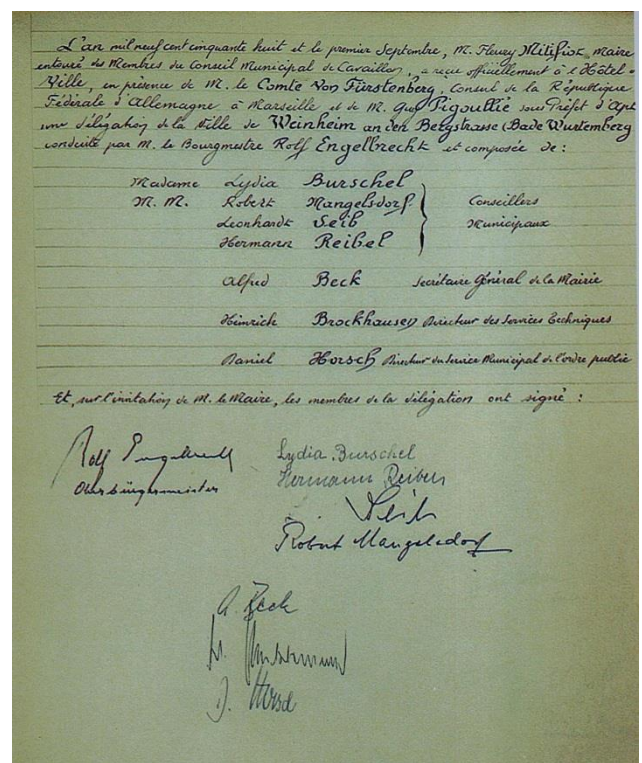 L'an mil neuf cent cinquante huit et le premier Septembre, M. Fleury Mitifiot, Maire
entouré des Membres du Conseil Municipal de Cavaillon, a reçu officiellement à l'Hôtel-
Ville, en présence de M. le Comte Von Fürstenberg, Consul de la République
Fédérale d'Allemagne à Marseille et de M. Guy Pigoullié sous Préfet d'Apt
une délégation de la Ville de Weinheim an der Bergstrasse (Bade Wurtemberg
conduite par M. le Bourgmestre Rolf Engelbrecht et composée de :
Madame Lydia Burschel
M. M. Robert Mangelsdorf Conseillers
Leonhardt Seib Municipaux
Hermann Reibel
Alfred Beck Secrétaire Général de la Mairie
Heinrich Brockhausen Directeur des Services Techniques
Daniel Horsch Directeur du Service Municipal de l'ordre public
Et, sur l'invitation de M. le Maire, les membres de la délégation ont signé :
Rolf Engelbrecht
Oberbürgermeister
Lydia Burschel
Hermann Reibel
Seib
Robert Mangelsdorf
A. Beck
D. Horsch